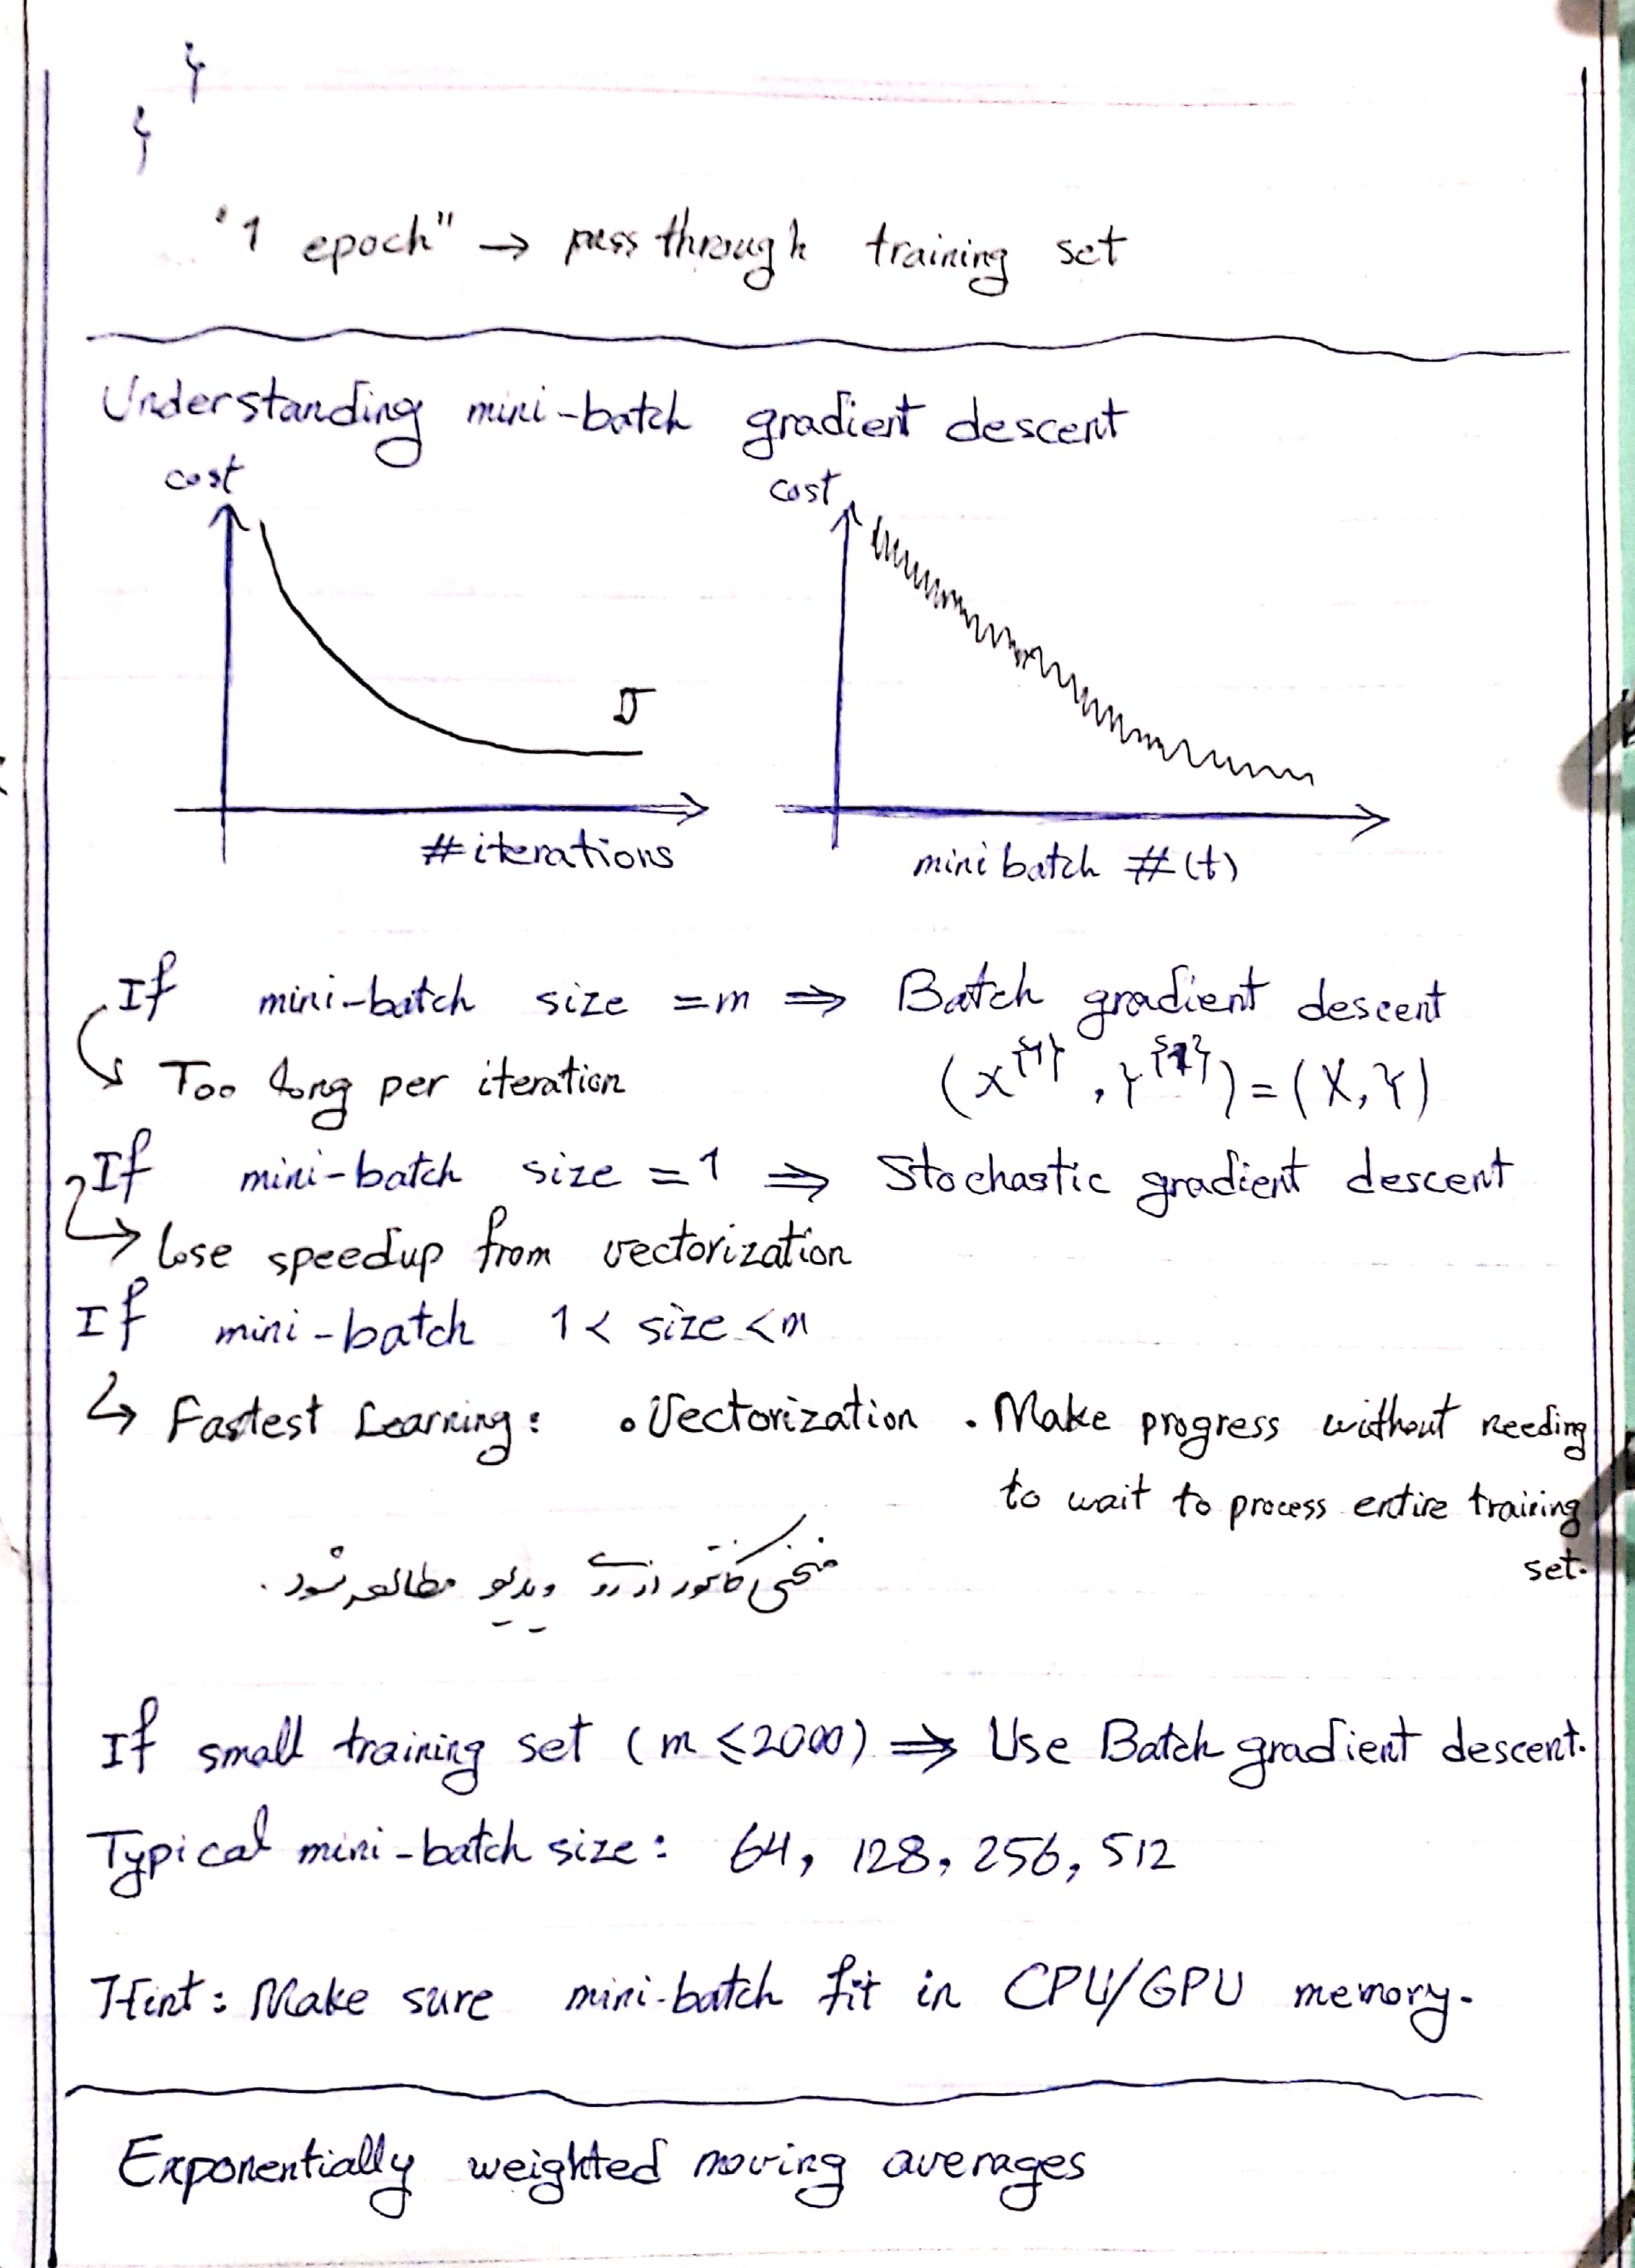 }
}
"1 epoch" → pass through training set
Understanding mini-batch gradient descent
cost
cost
J
#iterations
mini batch #(t)
If mini-batch size = m ⇒ Batch gradient descent
Too long per iteration (X^{1}, Y^{1}) = (X, Y)
If mini-batch size = 1 ⇒ Stochastic gradient descent
↳ lose speedup from vectorization
If mini-batch 1 < size < m
↳ Fastest Learning: • Vectorization • Make progress without needing
to wait to process entire training
set.
منحنی کانتور از روی ویدیو مطالعه شود.
If small training set (m ≤ 2000) ⇒ Use Batch gradient descent.
Typical mini-batch size: 64, 128, 256, 512
Hint: Make sure mini-batch fit in CPU/GPU memory.
Exponentially weighted moving averages